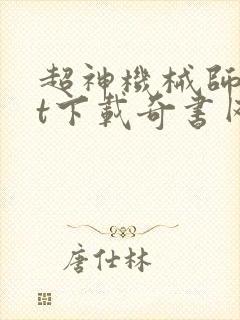 超神機械師
t下載奇書
唐仕林